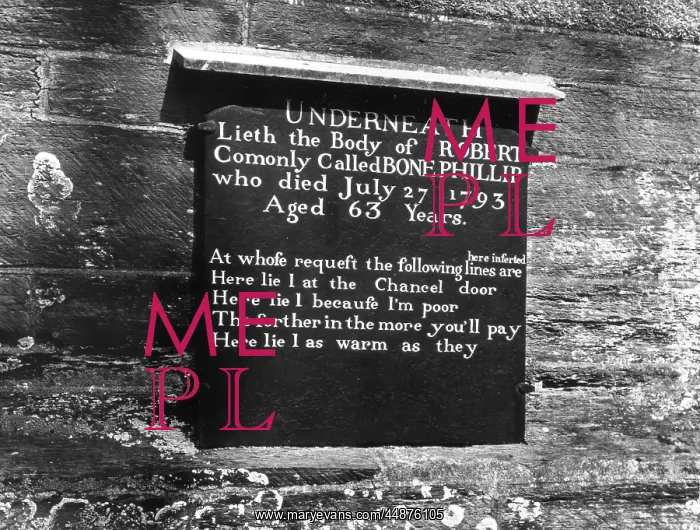 UNDERNEATH
Lieth the Body of ROBERT
Comonly Called BONE PHILLIP
who died July 27 1793
Aged 63 Years.
At whoſe requeſt the following lines are
here inſerted
Here lie I at the Chancel door
Here lie I becauſe I'm poor
The forther in the more you'll pay
Here lie I as warm as they
ME
PL
ME
PL
www.maryevans.com/44876105